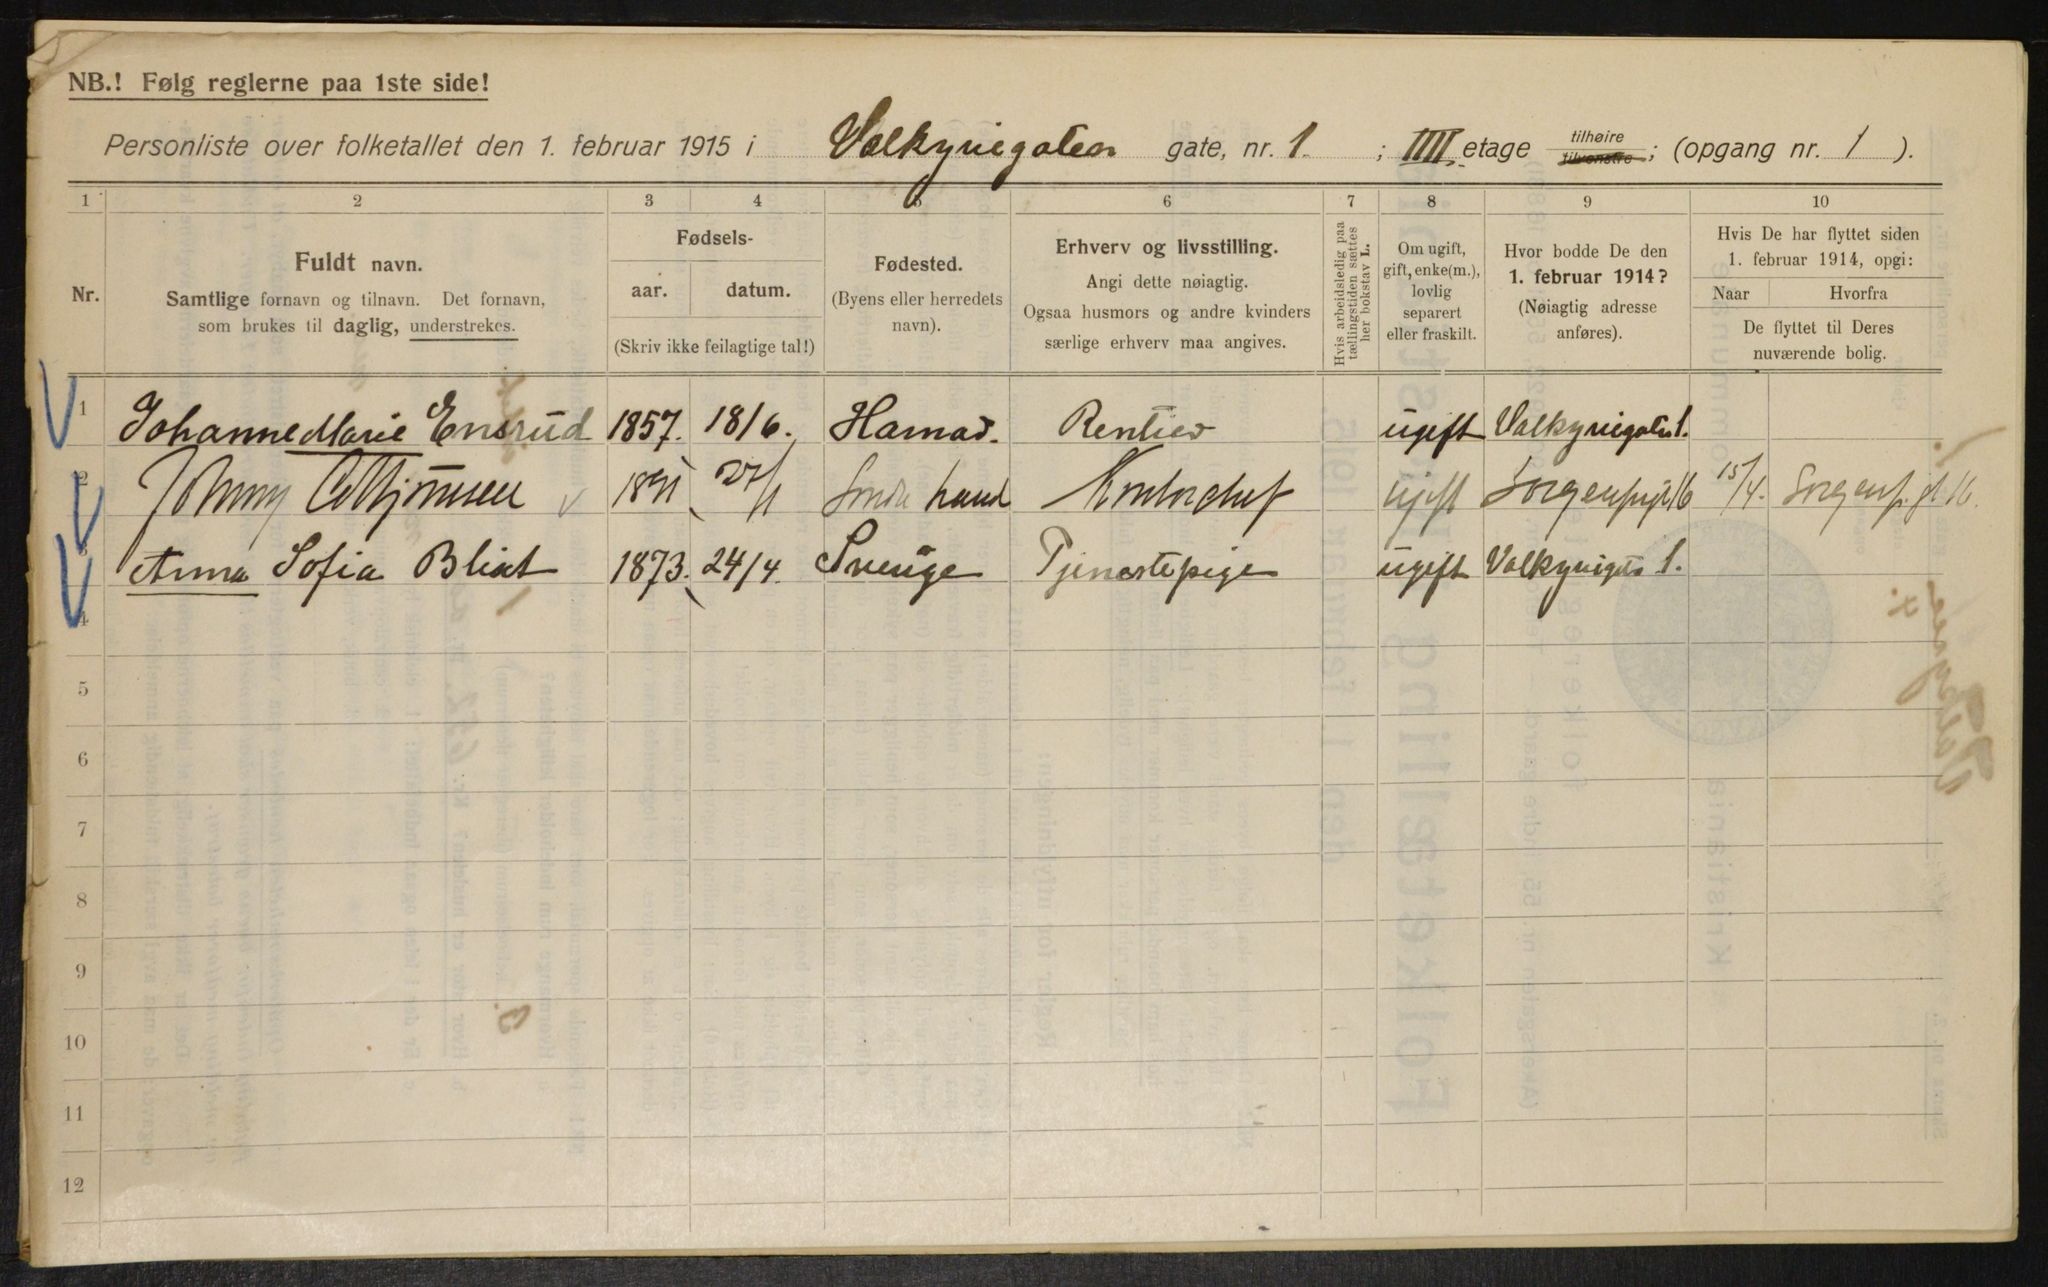 NB.! Følg reglerne paa 1ste side!
Personliste over folketallet den 1. februar 1915 i Valkyriegaten gate, nr. 1. ; IIII etage tilhøire tilvenstre; (opgang nr. 1 ).
1 2 3 4 5 6 7 8 9 10
Nr.
Fuldt navn.
Samtlige fornavn og tilnavn. Det fornavn,
som brukes til daglig, understrekes.
Fødsels-
aar. datum.
(Skriv ikke feilagtige tal!)
Fødested.
(Byens eller herredets
navn).
Erhverv og livsstilling.
Angi dette nøiagtig.
Ogsaa husmors og andre kvinders
særlige erhverv maa angives.
Hvis arbeidsledig paa
tællingstiden sættes
her bokstav L.
Om ugift,
gift, enke(m.),
lovlig
separert
eller fraskilt.
Hvor bodde De den
1. februar 1914?
(Nøiagtig adresse
anføres).
Hvis De har flyttet siden
1. februar 1914, opgi:
Naar Hvorfra
De flyttet til Deres
nuværende bolig.
1 Johanne Marie Ensrud 1857. 18/6. Hamar. Rentier ugift Valkyriegaten 1.
2 Johnny 1891 27/1 Kontorchef ugift 16 15/4. 16.
3 Anna Sofia Blixt 1873. 24/4. Sverige Tjenestepige ugift 1.
4
5
6
7
8
9
10
11
12